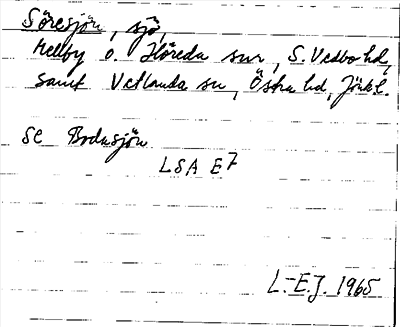 Söresjön, sjö,
Mellby o. Höreda snr, S. Vedbo hd,
samt Vetlanda sn, Östra hd, Jönk l.
se Bodasjön
LSA E7
L.-E.J. 1965